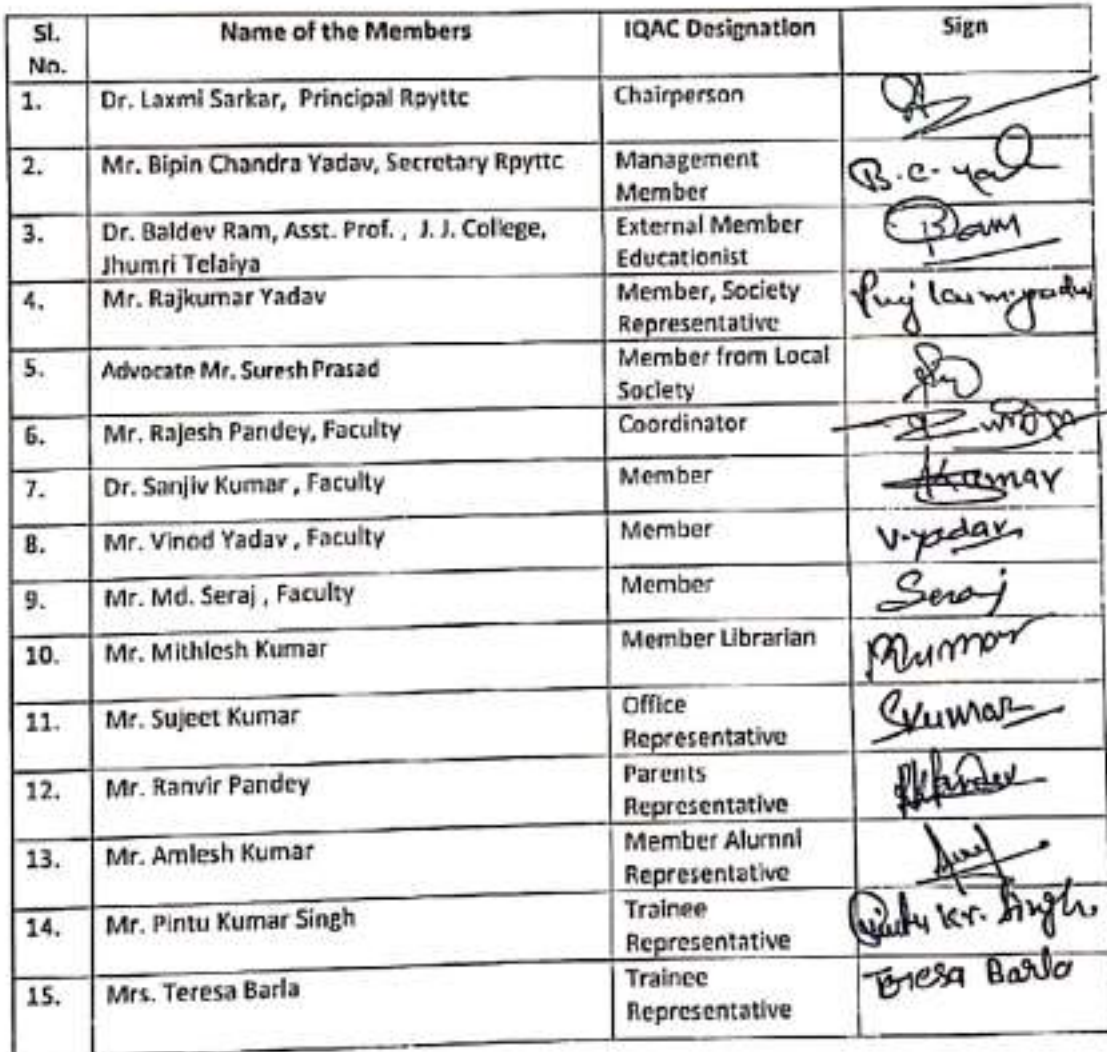 Sl. Name of the Members IQAC Designation Sign
No.
1. Dr. Laxmi Sarkar, Principal Rpyttc Chairperson
2. Mr. Bipin Chandra Yadav, Secretary Rpyttc Management B.C. Yad
Member
3. Dr. Baldev Ram, Asst. Prof. , J. J. College, External Member Ram
Jhumri Telaiya Educationist
4. Mr. Rajkumar Yadav Member, Society
Representative
5. Advocate Mr. Suresh Prasad Member from Local
Society
6. Mr. Rajesh Pandey, Faculty Coordinator
7. Dr. Sanjiv Kumar , Faculty Member Kumar
8. Mr. Vinod Yadav , Faculty Member V.yadav
9. Mr. Md. Seraj , Faculty Member Seraj
10. Mr. Mithlesh Kumar Member Librarian
11. Mr. Sujeet Kumar Office Skumar
Representative
12. Mr. Ranvir Pandey Parents
Representative
13. Mr. Amlesh Kumar Member Alumni
Representative
14. Mr. Pintu Kumar Singh Trainee Pintu Kr. Singh.
Representative
15. Mrs. Teresa Barla Trainee Teresa Barla
Representative